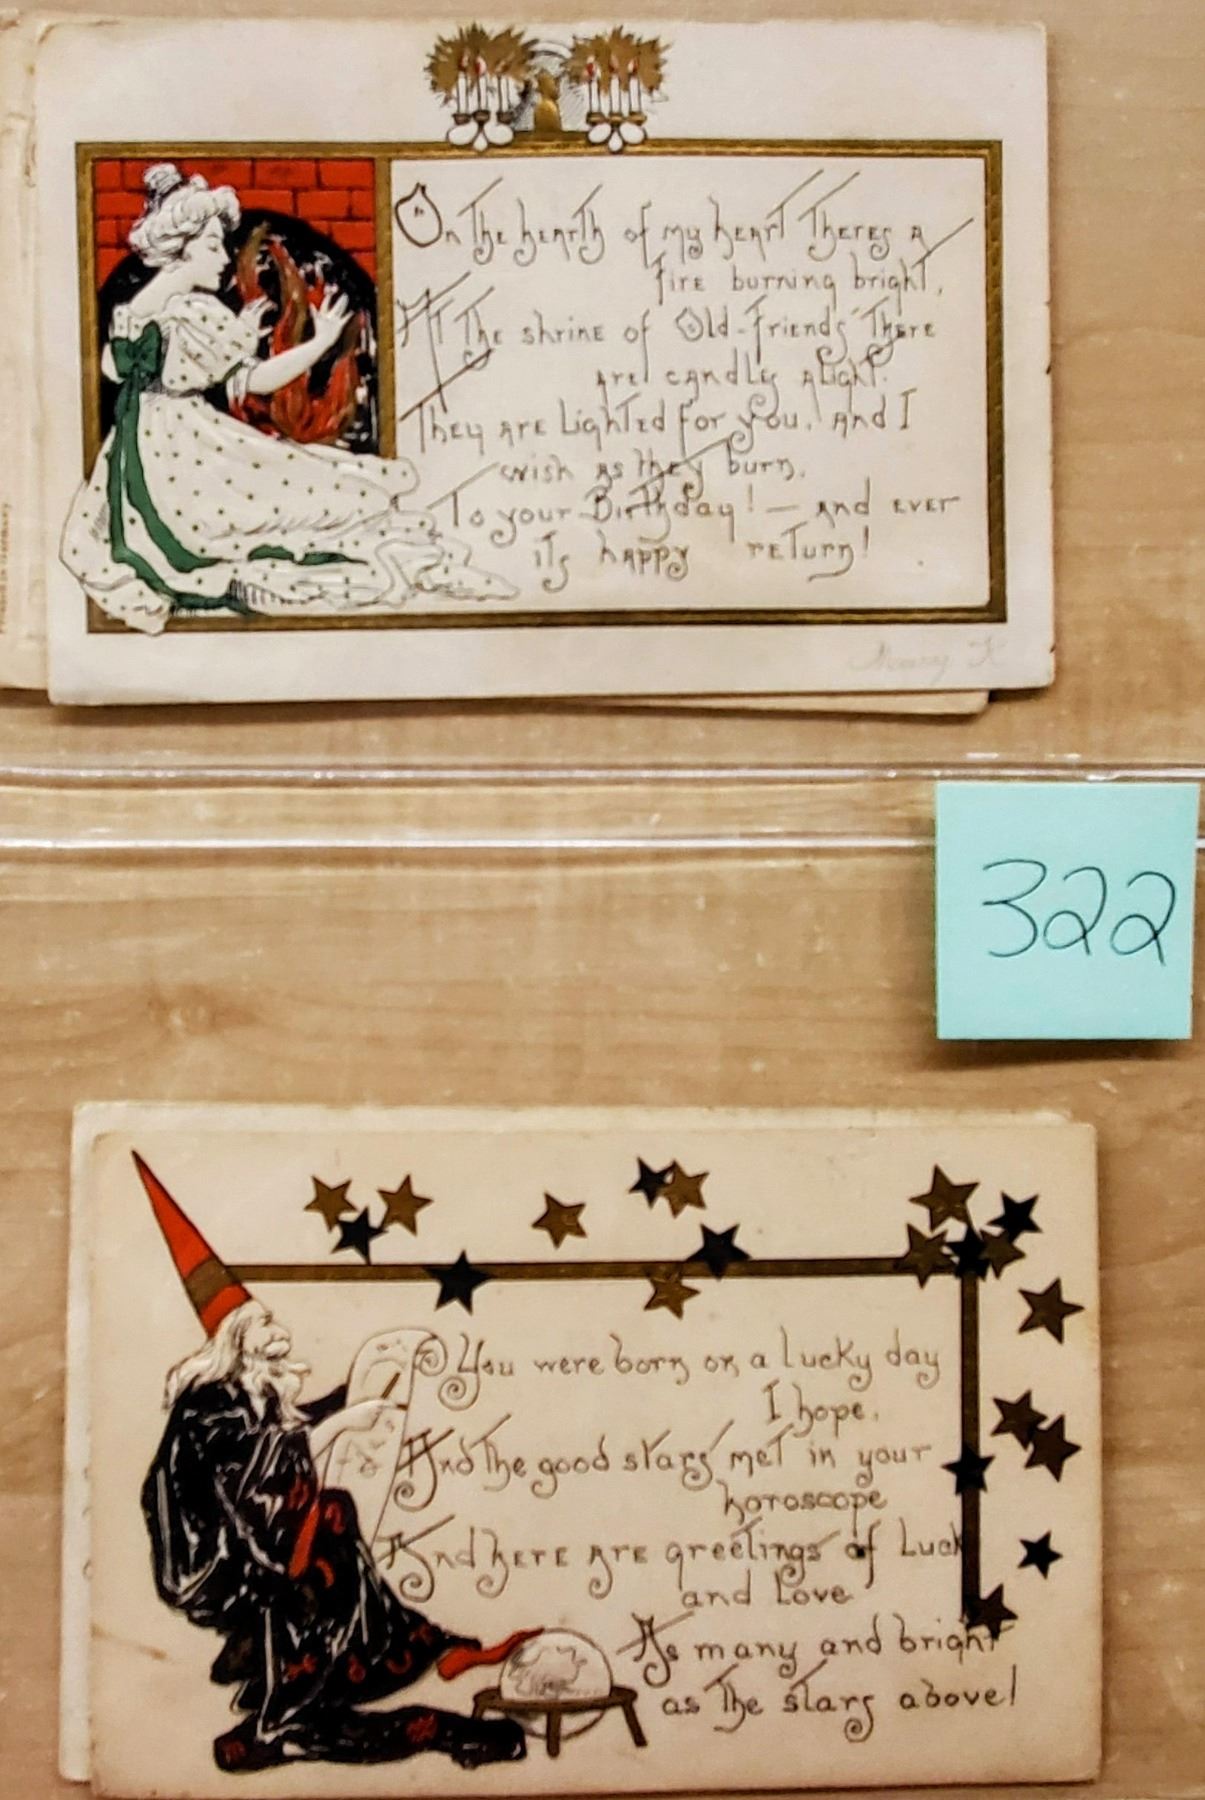 On the hearth of my heart theres a
fire burning bright,
At the shrine of "Old-Friends" there
are candles alight.
They are lighted for you, and I
wish as they burn,
To your Birthday! — and ever
its happy return!
322
You were born on a lucky day
I hope,
And the good stars met in your
horoscope
And here are greetings of Luck
and Love
As many and bright
as the stars above!